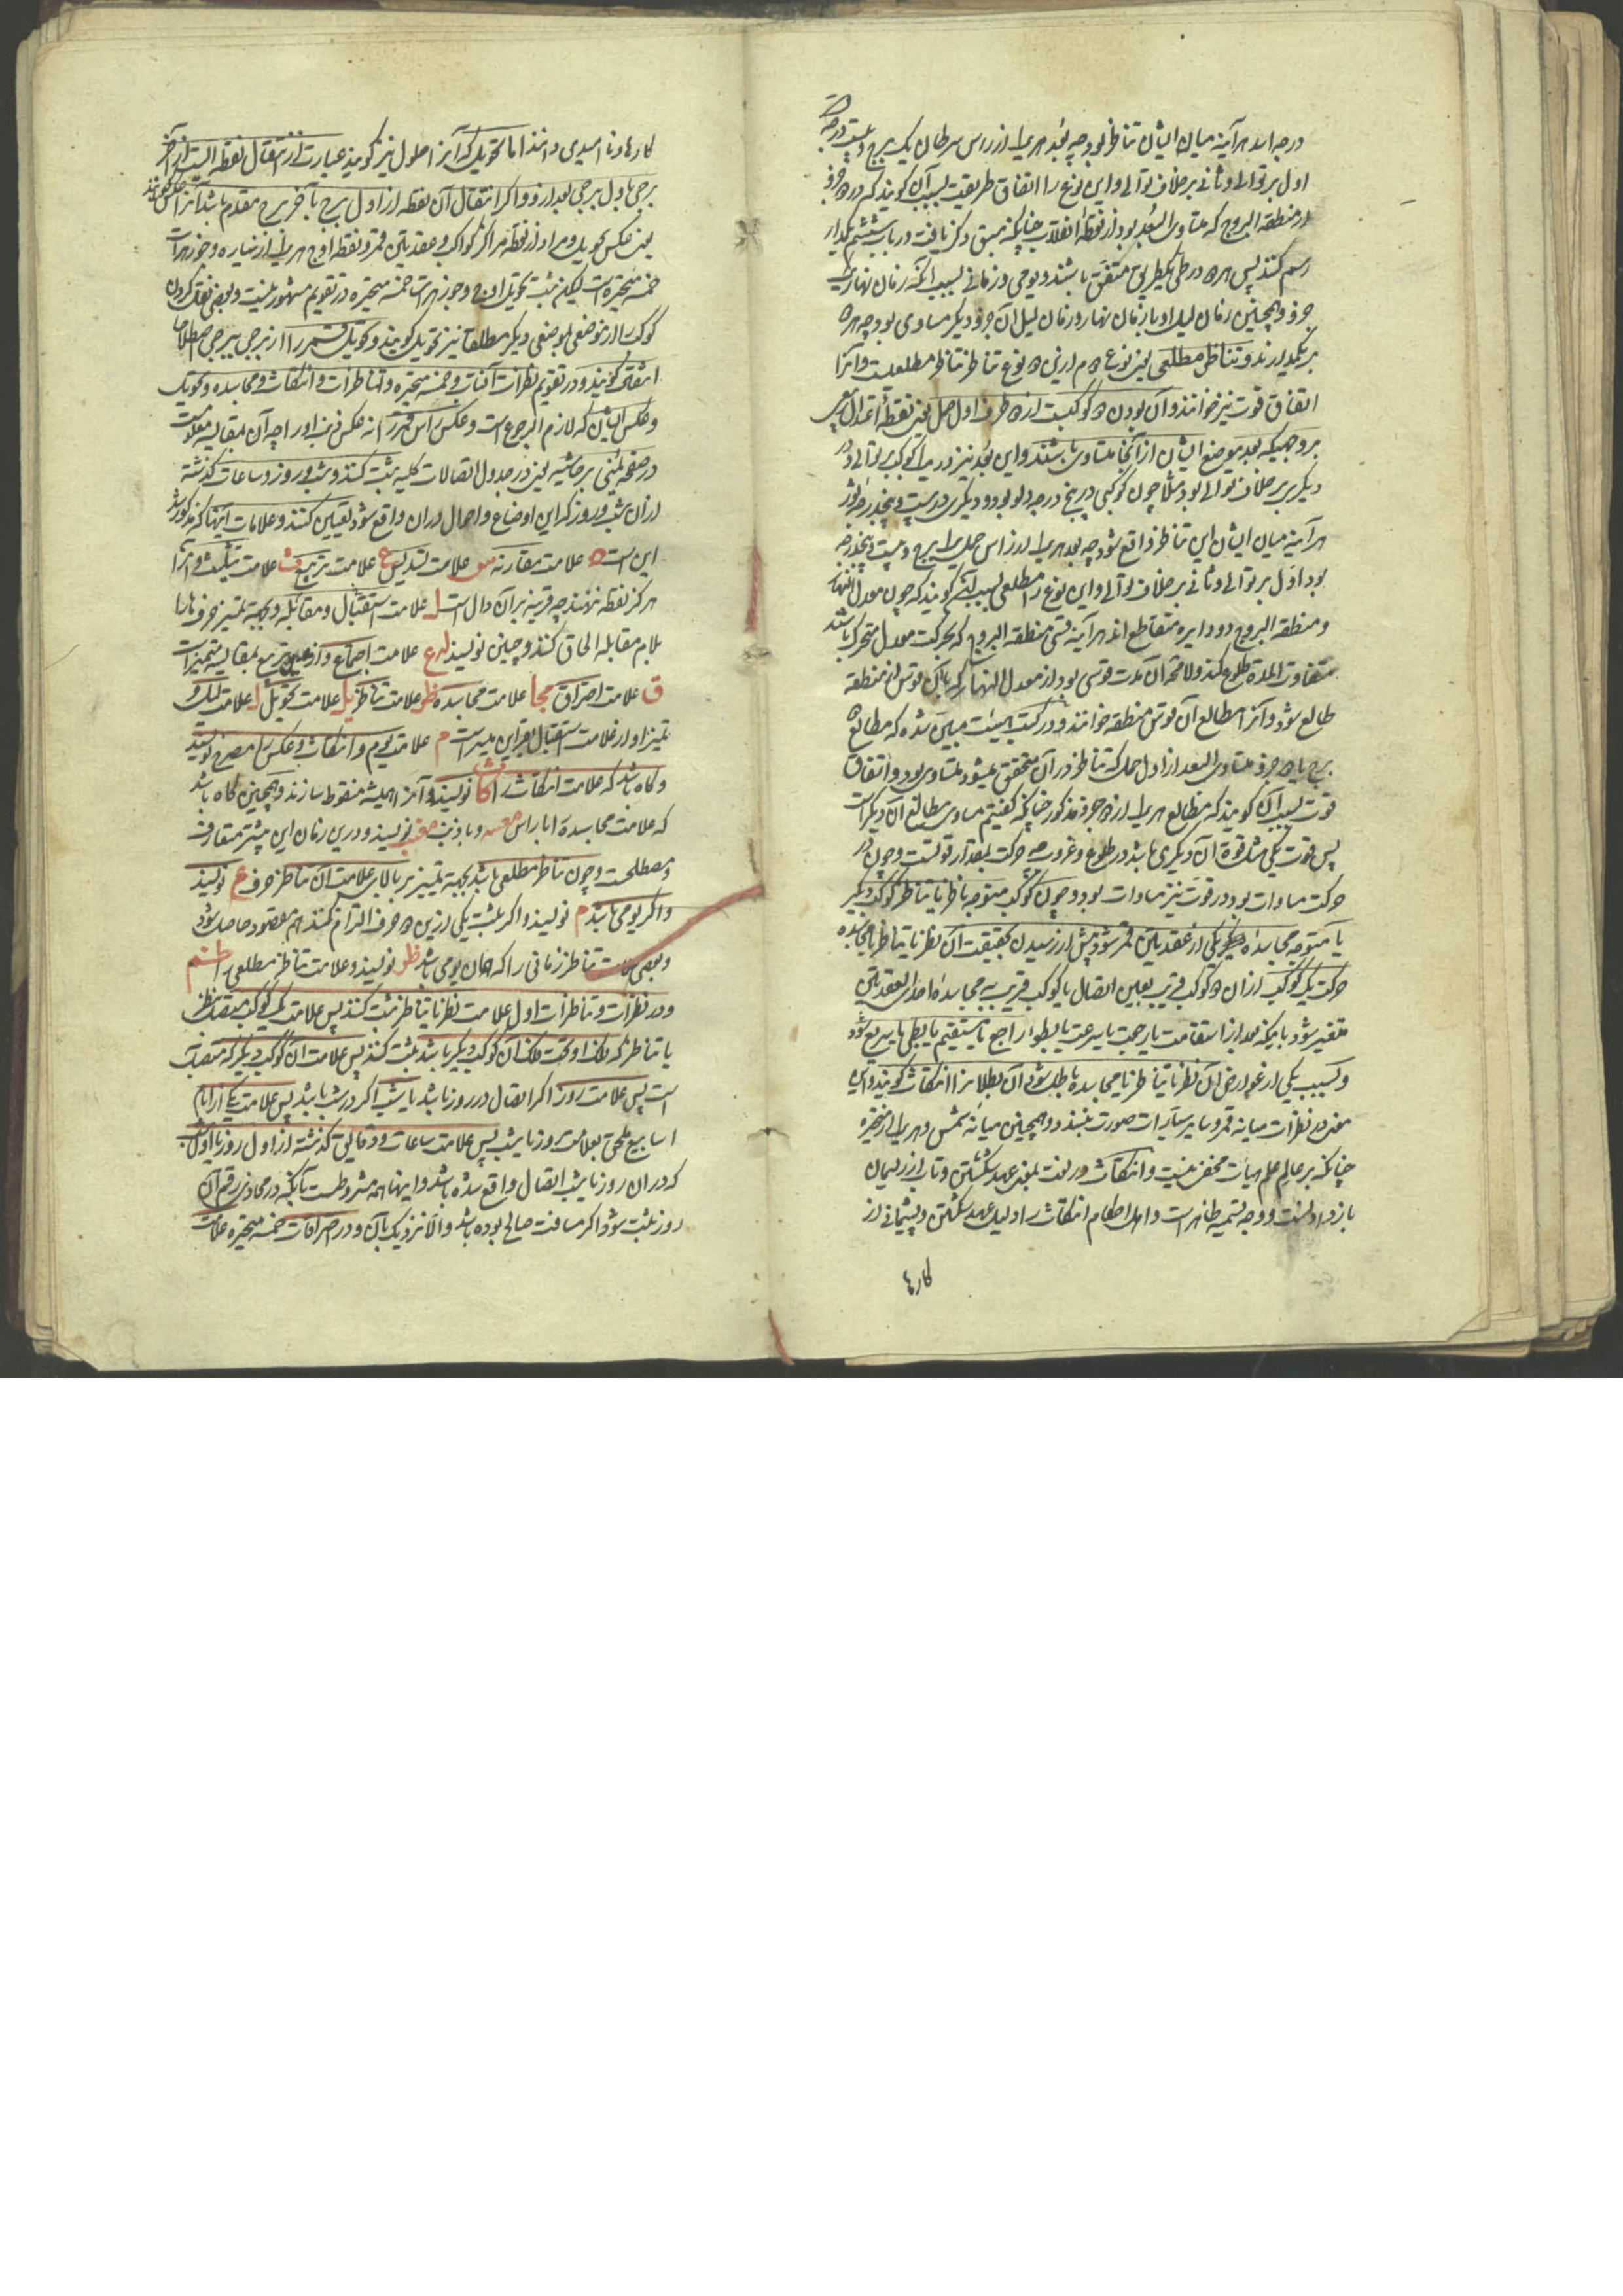 درجه اسد هرآینه میان ایشان تناظر بود چه بعد هر یک از راس سرطان یک برج و بیست درجه
اول بر توالی و ثانی بر خلاف توالی و این نوع را اتفاق طریقت بسبب آن گویند که هر دو جزو
از منطقة البروج که متساوی البعد بود از نقطه انقلاب چنانکه سبق ذکر یافت در باب ششم یکمدار
رسم کنند پس هر دو در طی یکطریق متفق باشند و یومی و زمانی بسبب آنکه زمان نهار یک
جزو و همچنین زمان لیل او با زمان نهار و زمان لیل آن جزو دیگر مساوی بود چه هر دو
بر یکمدارند و تناظر مطلعی یعنی نوع دوم از این دو نوع تناظر تناظر مطلعیست و آنرا
اتفاق قوت نیز خوانند و آن بودن دو کوکبست از دو طرف اول حمل یعنی نقطه اعتدال ربیعی
بر وجهیکه بعد موضع ایشان از آنجا متساوی باشند و این بعد نیز در یک کوکب بر توالی و در
دیگری بر خلاف توالی بود مثلا چون کوکبی در پنج درجه دلو بود و دیگری در بیست و پنجدرجه ثور
هرآینه میان ایشان این تناظر واقع شود چه بعد هر یک از راس حمل یک برج و بیست و پنجدرجه
بود اول بر توالی و ثانی بر خلاف توالی و این نوع را مطلعی بسبب آن گویند که چون معدل النهار
و منطقة البروج دو دایره متقاطع‌اند هرآینه قسی منطقة البروج که بحرکت معدل متحرک باشند
متفاوت المدة طلوع کنند و لا محاله در آن مدت قوسی بود از معدل النهار که با آن قوس از منطقه
طالع شود و آنرا مطالع آن قوس منطقه خوانند و در کتب هیئت مبین شده که مطالع
برج یا دو جزو متساوی البعد از اول حمل که تناظر در آن متحقق میشود متساوی بود و اتفاق
قوت بسبب آن گویند که مطالع هر یک از دو جزو مذکور چنانکه گفتیم مساوی مطالع آن دیگر است
پس قوت یکی مثل قوة آن دیگری باشد در طلوع و غروب چه حرکت بمقدار قوتست و چون در
حرکت مساوات بود در قوت نیز مساوات بود و چون کوکب متوجه ناظر یا تناظر کوکب دیگر
یا متوجه مجاسده یکی از عقدتین قمر شود پیش از رسیدن بحقیقت آن نظر یا تناظر یا مجاسده
حرکت یک کوکب از آن دو کوکب قریب بعین اتصال یا کوکب قریب به مجاسده احدی العقدتین
متغیر شود بآنکه بعد از استقامت یا رجعت یا سرعت یا بطو راجع یا مستقیم یا بطی یا سریع شود
و بسبب یکی از عوارض آن نظر یا تناظر یا مجاسده باطل شود آن بطلان را انتکاث گویند و این
معنی در نظرات میانه قمر و سایر سیارات صورت نبندد و همچنین میانه شمس و هر یک از متحیره
چنانکه بر عالم علم هیأت مخفی نیست و انتکاث در لغت بمعنی عهد شکستن و تاب از ریسمان
باز دادنست و وجه تسمیه ظاهر است و اهل احکام انتکاث را دلیل عهد شکستن و پشیمانی از
کارها
کارها و ناامیدی دانند اما تحویل که آنرا حلول نیز گویند عبارت از انتقال نقطه ایست از آخر
برجی باول برجی بعد از او و اگر انتقال آن نقطه از اول برج بآخر برج مقدم باشد آنرا عکس گویند
یعنی عکس تحویل و مراد از نقطه مراکز کواکب و عقدتین قمر و نقطه اوج هر یک از سیاره و جوزهرات
خمسه متحیره است لیکن ثبت تحویل اوج و جوزهرات خمسه متحیره در تقویم مشهور نیست و بعضی نقل کردن
کوکب را از موضعی بموضعی دیگر مطلقا نیز تحویل گویند و تحویل قمر را از برجی ببرجی اصطلاحا
انتقال گویند و در تقویم نظرات آفتاب و خمسه متحیره و تناظرات و انتکاثات و مجاسده و تحویل
و عکس ایشان که لازم الرجوع است و عکس راس قمر را نه عکس ذنب او را چه آن بمقایسه معلوم است
در صفحه یمنی بر حاشیه یعنی در جدول اتصالات کلیه ثبت کنند و شب و روز و ساعات گذشته
از آن شب و روز که این اوضاع و احوال در آن واقع شود تعیین کنند و علامات اینها که مذکور شد
این است ه علامت مقارنه س علامت تسدیس ع علامت تربیع ث علامت تثلیث و آنرا
هرگز نقطه ننهند چه قرینه بر آن دال است ل علامت استقبال و مقابله و بجهة تمییز حرف ها را
بلام مقابله الحاق کنند و چنین نویسند له ع علامت اجتماع و از عین تربیع بمقایسه متمیز است
ق علامت احتراق مجا علامت مجاسده ظر علامت تناظر یل علامت تحویل ل علامت لیل و
تمیز او از علامت استقبال بقراین میسر است م علامت یوم و انتکاث و عکس را مصرح نویسند
و گاه باشد که علامت انتکاث را کاث نویسند و آنرا همیشه منقوط سازند و همچنین گاه باشد
که علامت مجاسده را با راس مجسه و با ذنب مجنب نویسند و در این زمان این بیشتر متعارف
و مصطلحست و چون تناظر مطلعی باشد بجهة تمییز بر بالای علامت آن تناظر حرف ع نویسند
و اگر یومی باشد م نویسند و اگر بثبت یکی از این دو حرف التزام کنند هم مقصود حاصل شود
و بعضی علامت تناظر زمانی را که همان یومی باشد ظر نویسند و علامت تناظر مطلعی را
و در نظرات و تناظرات اول علامت نظر یا تناظر ثبت کنند پس علامت یک کوکب متصل بنظر
یا تناظر که فلک او تحت فلک آن کوکب دیگر باشد ثبت کنند پس علامت آن کوکب دیگر که متصل به
است پس علامت روز اگر اتصال در روز باشد یا شب اگر در شب باشد پس علامت یکی از ایام
اسابیع ملحق بعلامت روز یا شب پس علامت ساعات و دقایق گذشته از اول روز یا اول شب
که در آن روز یا شب اتصال واقع شده باشد و اینها همه مشروطست بآنکه در محاذی رقم آن
روز ثبت شود اگر مسافت صالح بوده باشد و الا نزدیک بآن و در احتراقات خمسه متحیره علامت